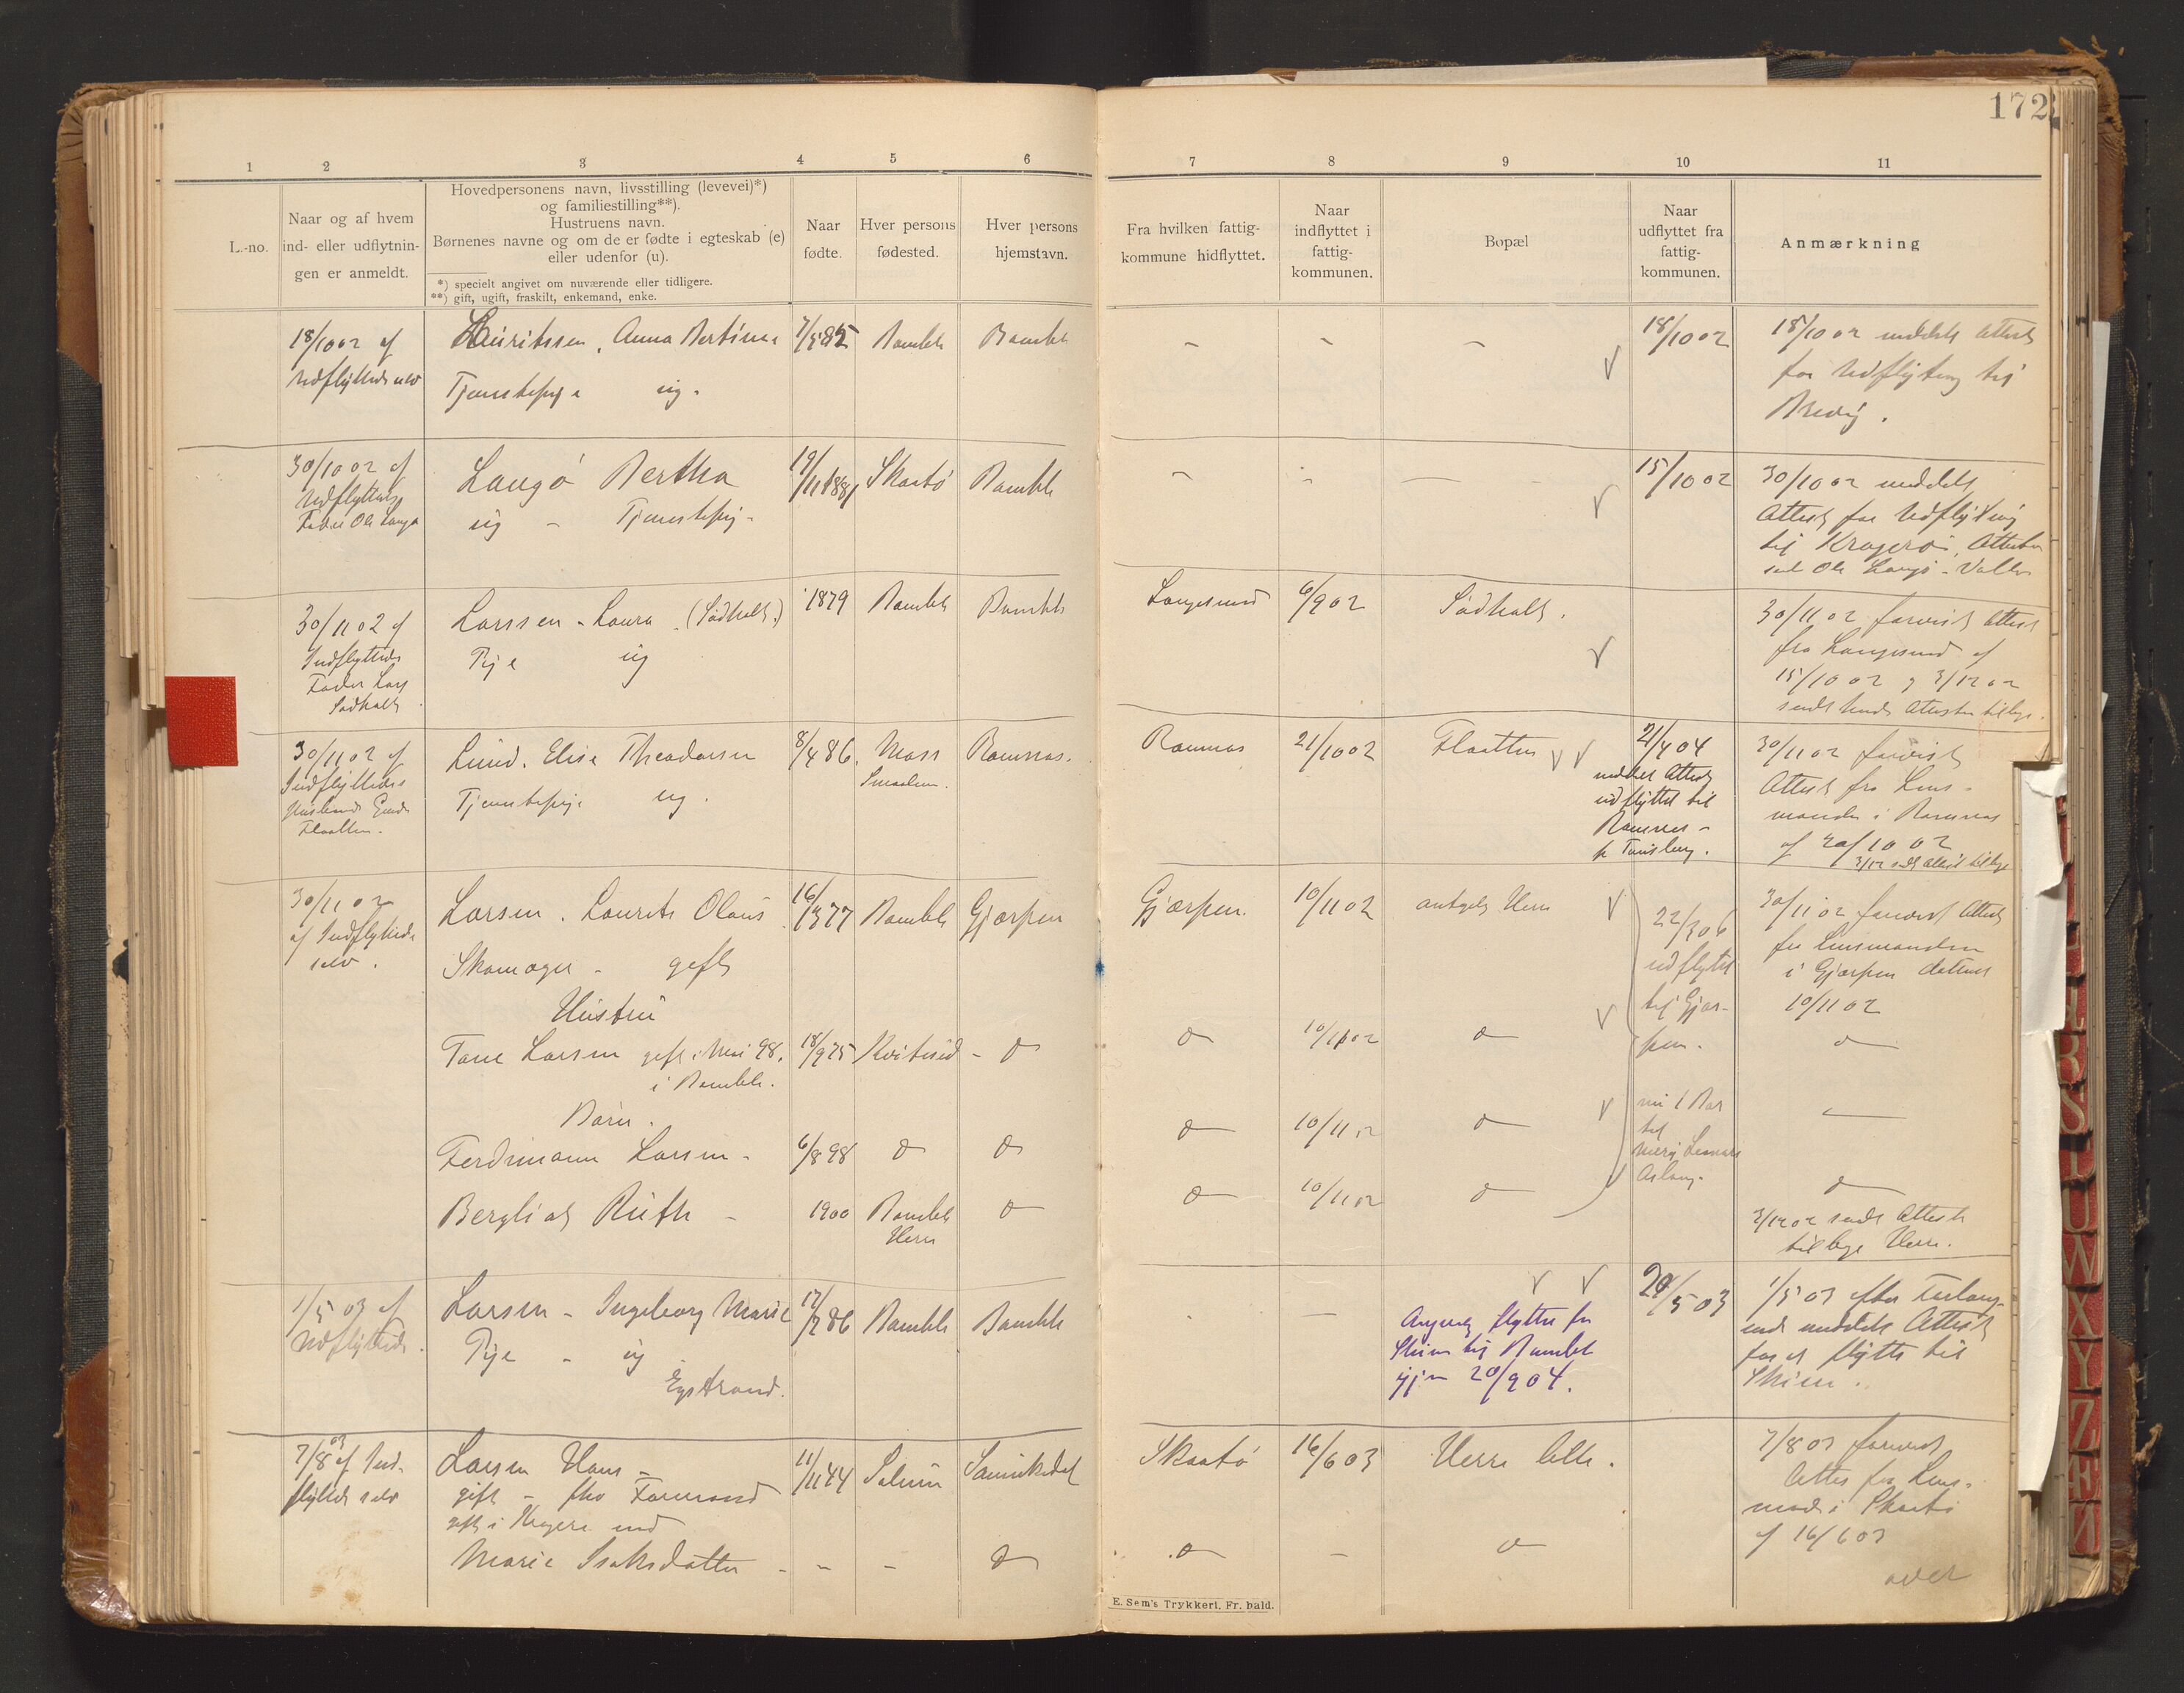 172
1 2 3 4 5 6 7 8 9 10 11
L.-no.
Naar og af hvem
ind- eller udflytnin-
gen er anmeldt.
Hovedpersonens navn, livsstilling (levevei)*)
og familiestilling**).
Hustruens navn.
Børnenes navne og om de er fødte i egteskab (e)
eller udenfor (u).
*) specielt angivet om nuværende eller tidligere.
**) gift, ugift, fraskilt, enkemand, enke.
Naar
fødte.
Hver persons
fødested.
Hver persons
hjemstavn.
Fra hvilken fattig-
kommune hidflyttet.
Naar
indflyttet i
fattig-
kommunen.
Bopæl
Naar
udflyttet fra
fattig-
kommunen.
Anmærkning
18/10 02 af
Udflyttede selv
Lauritssen, Anna Bertine
Tjenestepige ug.
Bamble
Bamble
18/10 02
18/10 02 meddelt Attest
for Udflytning til
Brevig.
30/10 02 af
Udflyttedes
Fader Ole Langø
Langø Bertha
ug - Tjenestepig.
19/11 1881
Skaatø
Bamble
15/10 02
30/10 02 meddelt
Attest for Udflytning
til Kragerø, Attesten
sendt Ole Langø - Valle
30/11 02 af
Indflyttedes
Fader Lars
Sødholt
Larssen - Laura (Sødholt.)
Pige ug
1879
Bamble
Bamble
Langesund
6/9 02
Sødholt.
30/11 02 forevist Attest
fra Langesund af
15/10 02 3/12 02
sendt hende Attesten tilbage.
30/11 02 af
Indflyttedes
Husbond
Flaatten.
Lund. Elise Theodorsen
Tjenestepige ug.
8/4 86.
Moss
Smaalen.
Ramnæs.
Ramnæs
21/10 02
Flaatten
21/4 04
meddelt Attest
udflyttet til
Ramnes -
pr Tønsberg.
30/11 02 forevist
Attest fra Lens-
manden i Ramnæs
af 20/10 02
3/12 sendt Attest tilbage
30/11 02
af Indflyttede
selv.
Larsen. Laurits Olaus
Skomager - gift
16/3 77
Bamble
Gjærpen
Gjærpen.
10/11 02
Herre
22/3 06
udflyttet
til Gjær-
pen.
30/11 02 forevist Attest
fra Lensmanden
i Gjærpen datert
10/11 02
Hustru
Tone Larsen gift i Mai 98.
i Bamble.
18/9 75
Kvitesid
do
do
10/11 02
do
do
Børn.
Ferdinann Larsen -
6/8 98
do
do
do
10/11 02
do
Bergliot Ruth -
1900
Bamble
Herre
do
do
10/11 02
do
do
3/12 02 sendt Attest
tilbage Herre.
1/5 03 af
Udflyttede.
Larsen - Ingeborg Marie
Pige - ug
Egstrand.
Bamble
Bamble
flytter fra
Skien til Bamble
igjen 20/9 04.
20/5 03
1/5 03 efter Forlang-
ende meddelt Attest
for at flytte til
Skien.
7/8 03 af Ind-
flyttede selv
Larsen Hans -
gift - fhv Formand
gift i Kragerø med
Marie Isaksdatter
11/11 44
Solum
Sannikedal
do
Skaatø
16/6 03
Herre
do
do
7/8 03 forevist
Attest fra Lens-
mand i Skaatø
af 16/6 03
over
E. Sem's Trykkeri, Fr. hald.
R
S
T
U
W
X
Y
Z
Æ
Ø